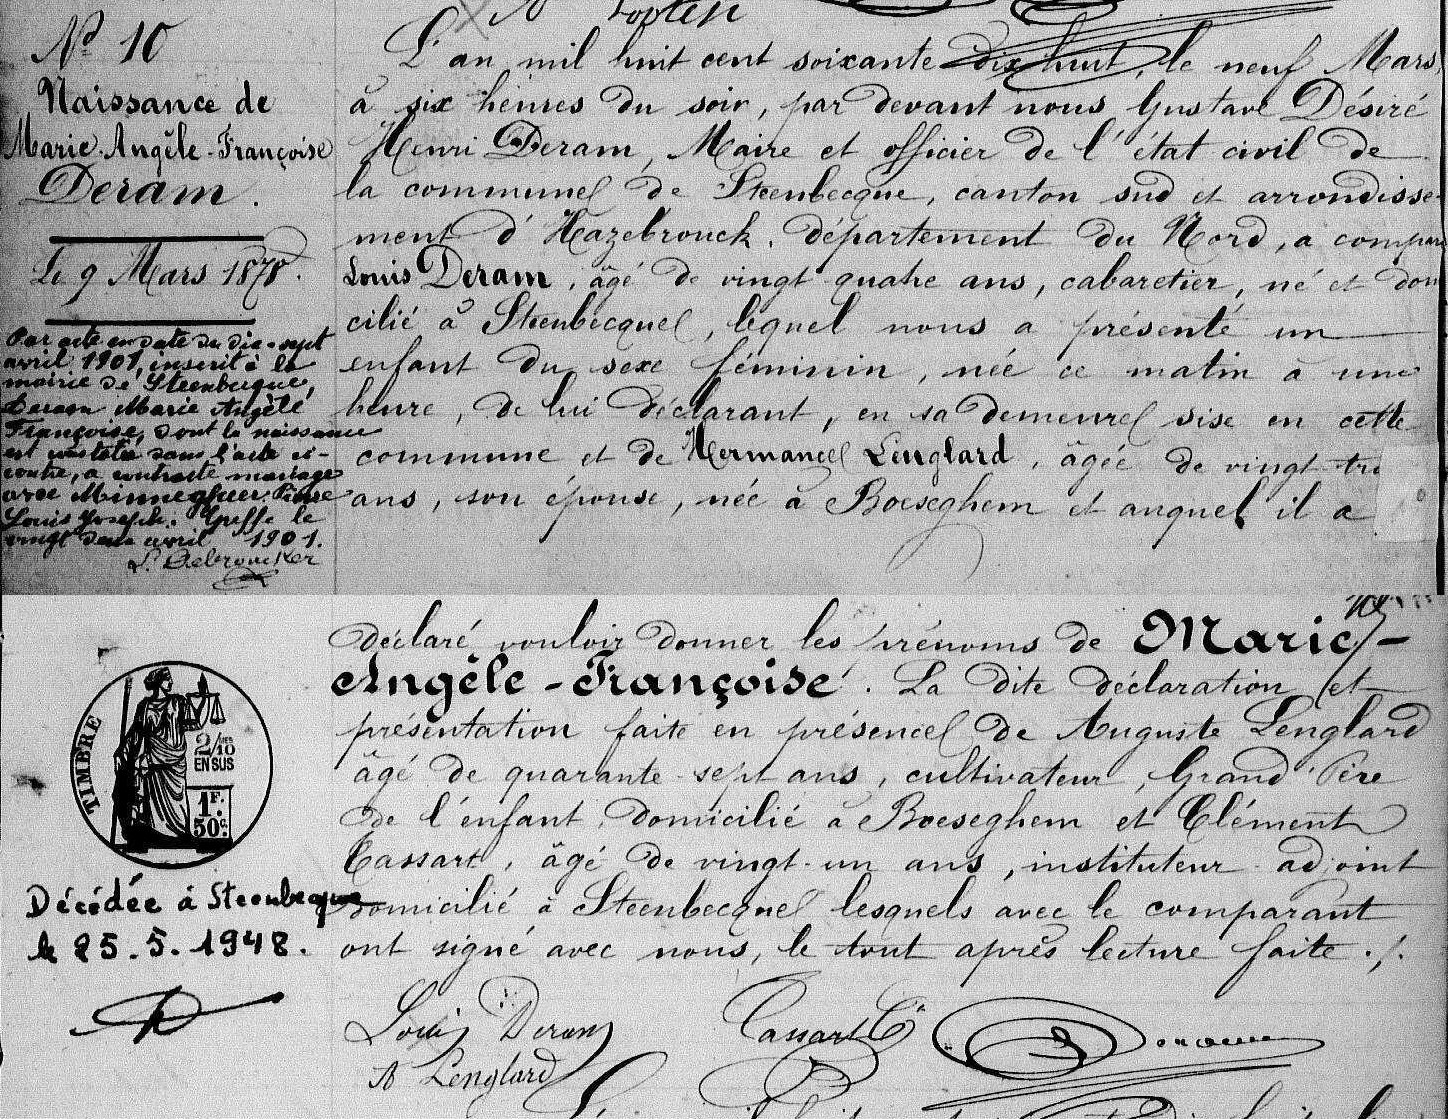 Nº 10
Naissance de
Marie-Angèle-Françoise
Deram.
Le 9 Mars 1878.
Par acte en date du dix-sept
avril 1901, inscrit à la
mairie de Steenbecque,
Deram Marie Angèle
Françoise, dont la naissance
est constatée dans l'acte ci-
contre, a contracté mariage
avec
Louis Joseph. Greffe le
vingt deux avril 1901.
L. Debroucker
L'an mil huit cent soixante dix huit, le neuf Mars,
à six heures du soir, par devant nous Gustave Désiré
Henri Deram, Maire et officier de l'état civil de
la commune de Steenbecque, canton sud et arrondisse-
ment d'Hazebrouck, département du Nord, a compar
Louis Deram, âgé de vingt quatre ans, cabaretier, né et dom
cilié à Steenbecque, lequel nous a présenté un
enfant du sexe féminin, née ce matin à une
heure, de lui déclarant, en sa demeure sise en cette
commune et de Hermance Lenglard, âgée de vingt tr
ans, son épouse, née à Boeseghem et auquel il a
déclaré vouloir donner les prénoms de Marie-
Angèle-Françoise. La dite déclaration et
présentation faite en présence de Auguste Lenglard
âgé de quarante-sept ans, cultivateur, Grand Père
de l'enfant, domicilié à Boeseghem et Clément
Cassart, âgé de vingt-un ans, instituteur adjoint
domicilié à Steenbecque lesquels avec le comparant
ont signé avec nous, le tout après lecture faite ./.
TIMBRE
2/10
EN SUS
1F.
50c.
Décédée à Steenbecque
le 25.5.1948.
Louis Deram
Cassart Ct
A Lenglard